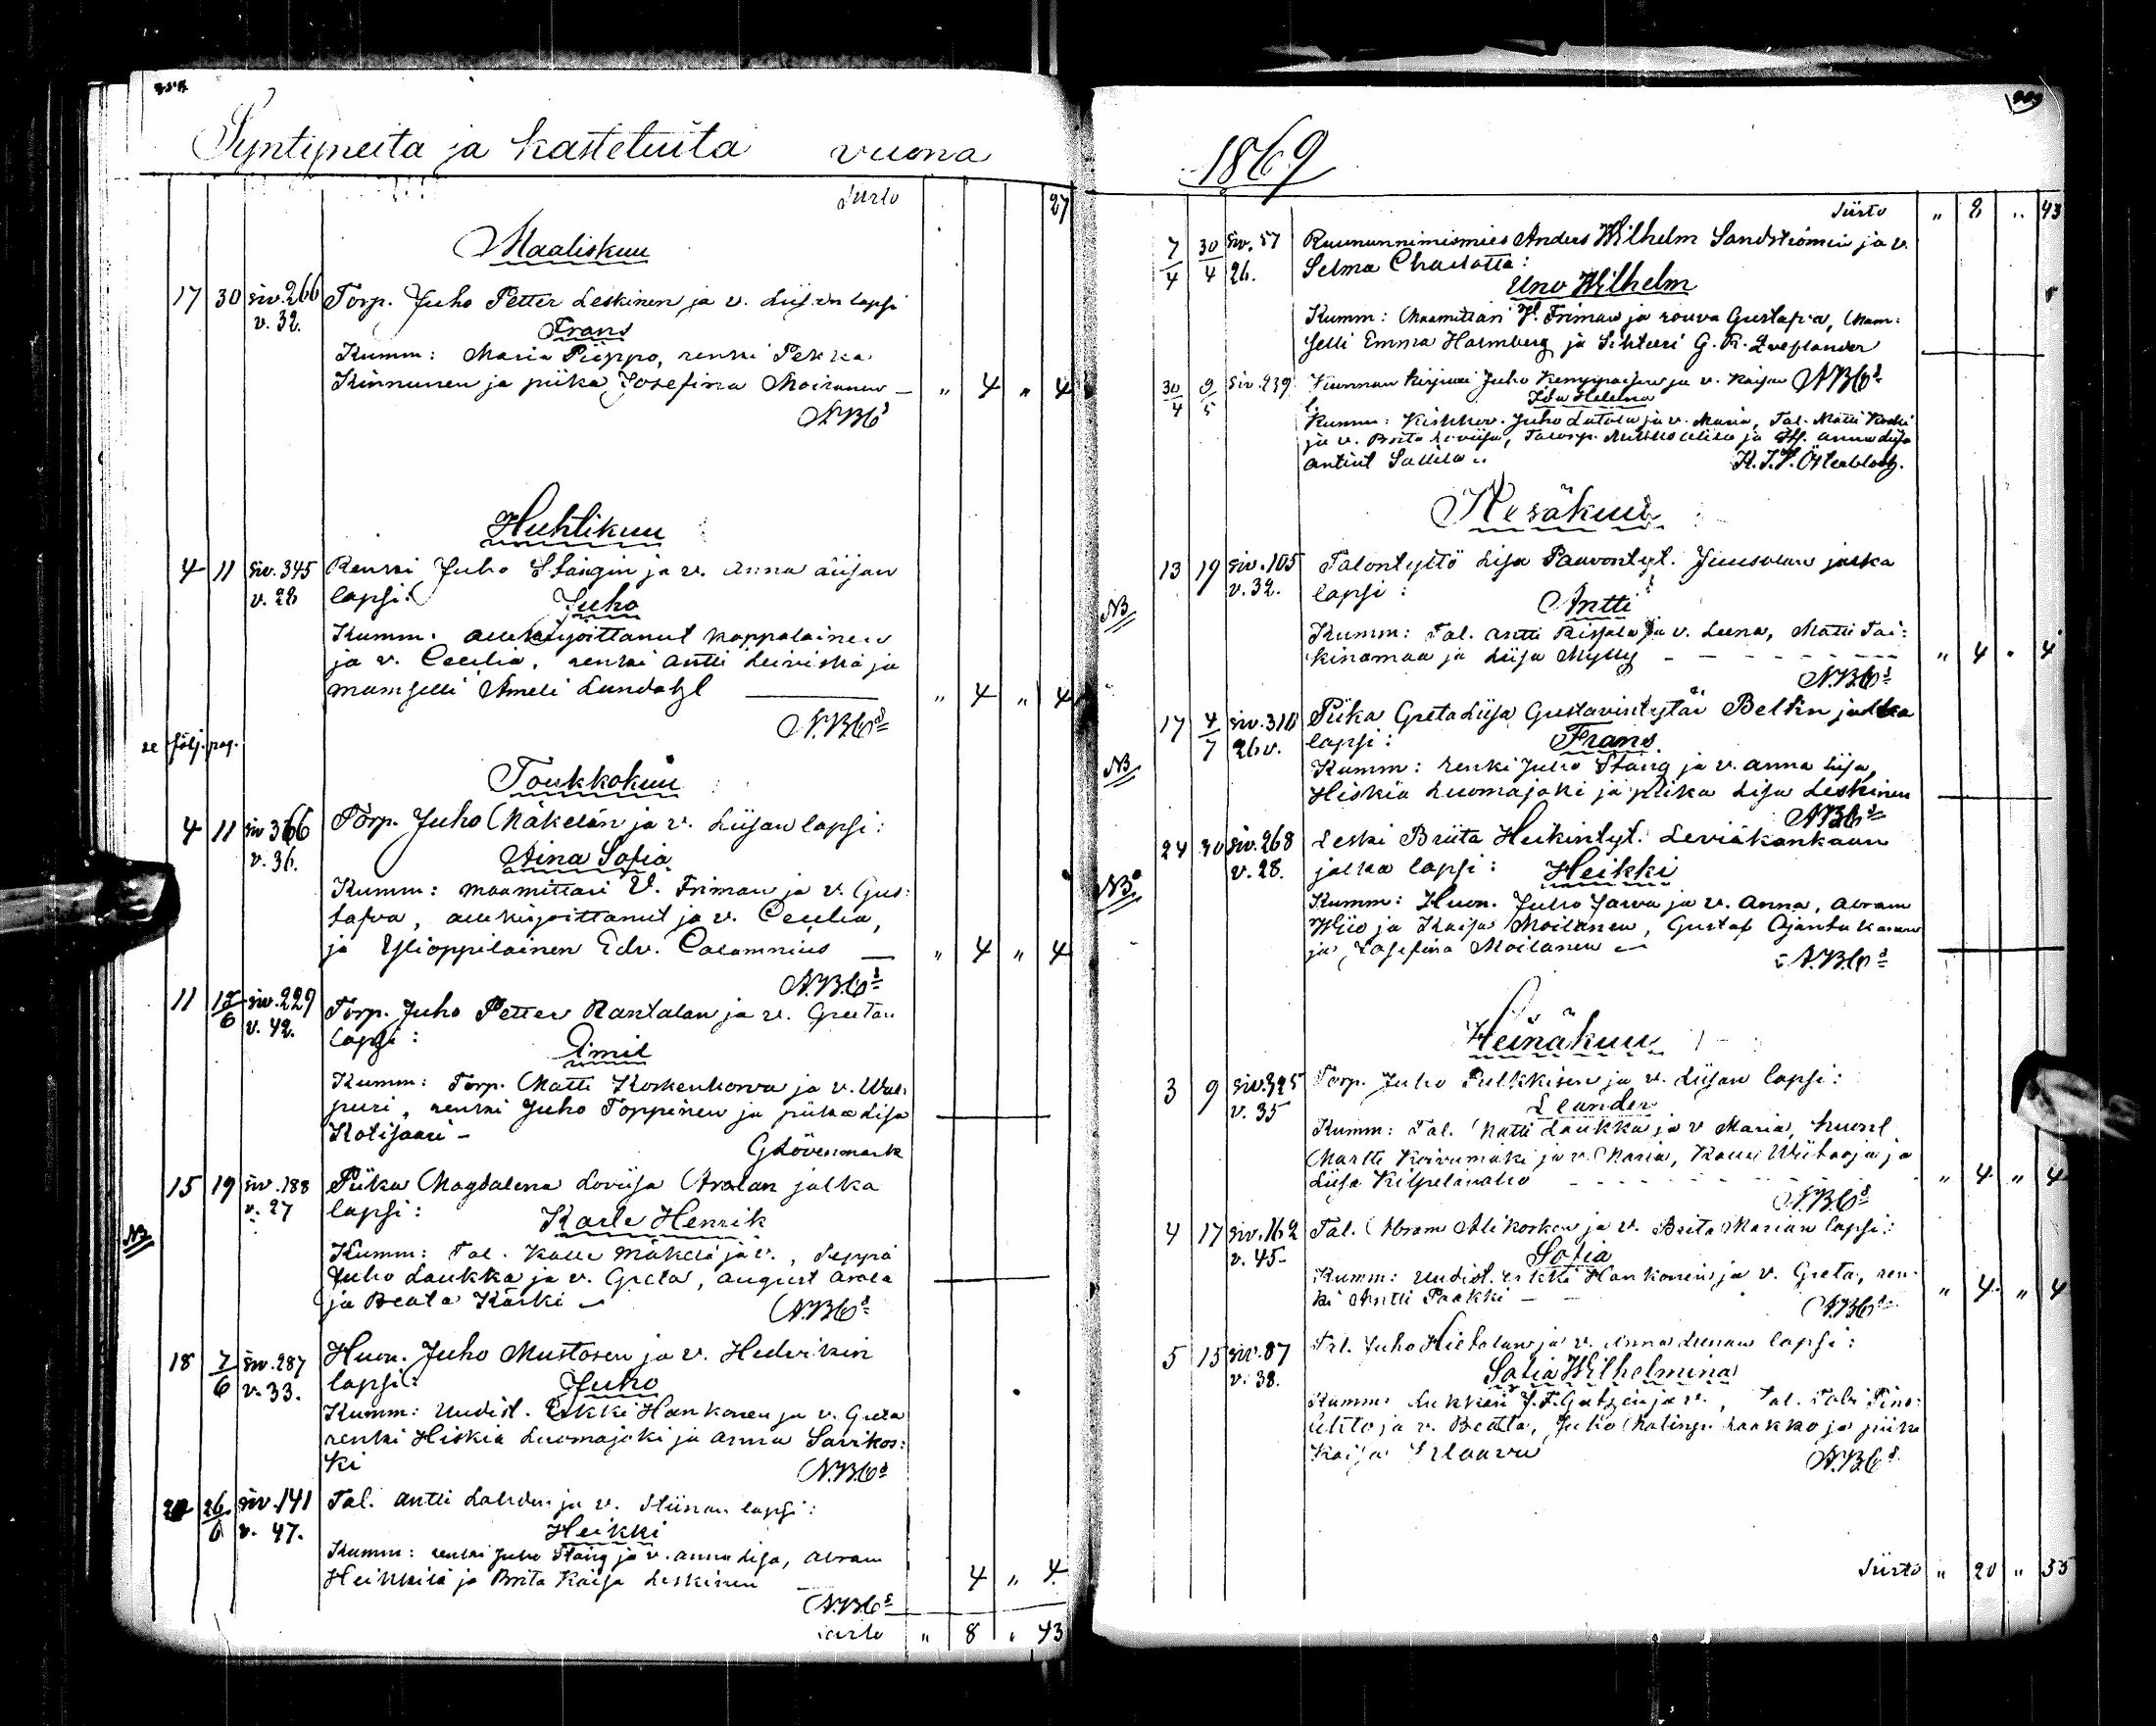 Syntyneitä ja kastetuita vuona
Siirto 27
Maaliskuu
17 30 siv. 266 Torp. Juho Petter Leskinen ja v. Liisan lapsi
v. 32. Frans
Kumm: Maria Piippo, renki Pekka
Kinnunen ja piika Josefina Moilanen — " 4 " 4
Huhtikuu
4 11 siv. 345 Renki Juho Stångin ja v. Anna Liisan
v. 28 lapsi: Juho
Kumm. allekirjoittanut kappalainen
ja v. Cecilia, renki Antti Leiviskä ja
mamselli Ameli Lundahl " 4 " 4
N.B.C:s
se följ. pag.
Toukkokuu
4 11 siv 366 Torp. Juho Mäkelän ja v. Liisan lapsi:
v. 36. Aina Sofia
Kumm: maamittari V. Friman ja v. Gus:
tafva, allekirjoittanut ja v. Cecilia,
ja Ylioppilainen Edv. Calamnius — " 4 " 4
N.B.C:s
11 15/6 siv. 229 Torp. Juho Petter Rantalan ja v. Greetan
v. 42. lapsi:
Emil
Kumm: Torp. Matti Koskenkorva ja v. Wal:
puri, renki Juho Toppinen ja piika Lisa
Kotisaari —
G Lövenmark
15 19 siv. 188 Piika Magdalena Lovisa Aralan jalka
v. 27 lapsi: Karle Henrik
NB
Kumm: Tal. Kalle Mäkelä ja v., Seppä
Juho Laukka ja v. Greta, August Arala
ja Beata Kärki —
N.B.C:s
18 7/6 siv. 287 Huon. Juho Mustosen ja v. Hedvikin
v. 33. lapsi: Juho
Kumm: Uudist. Erkki Hankonen ja v. Greta
renki Hiskia Luomajoki ja Anna Sarikos:
ki
N.B.C:s
26/6 siv. 141 Tal. Antti Lahden ja v. Stiinan lapsi:
v. 47. Heikki
Kumm: renki Juho Stång ja v. Anna Lisa, Abram
Heikkilä ja Brita Kaisa Leskinen 4 " 4
N.B.C:s
Siirto " 8 " 43
1869
Siirto " 8 " 43
7/4 30/4 siv. 57 Ruununnimismies Anders Wilhelm Sandströmin ja v.
26. Selma Charlotta:
Uno Wilhelm
Kumm: Maamittari V. Friman ja rouva Gustafva, Mam:
selli Emma Holmberg ja Sihteeri G. R.
30/4 9/5 siv. 239 Kunnan kirjuri Juho Kemppaisen ja v. Kaisan N.B.C:s
l: Ida Helena
Kumm: Juho Latola ja v. Maria, Tal. Matti Koski
ja v. Brita Lovisa, ja Anna Lisa
Österbladh.
Kesäkuu
13 19 siv. 105 Talontyttö Lisa Paavontyt. Juusolan jalka
v. 32. lapsi:
NB
Antti
Kumm: Tal. Antti Rissala ja v. Leena, Matti Tai:
kinamaa ja Liisa Mylly " 4 " 4
N.B.C:s
17 4/7 siv. 310 Piika Greta Liisa Gustavintytär Beltin jalka
26 v. lapsi: Frans
NB
Kumm: renki Juho Stång ja v. Anna Liisa,
Hiskia Luomajoki ja piika Lisa Leskinen
N.B.C:s
24 30 siv. 268 Leski Briita Heikintyt. Leviäkankaan
v. 28. jalka lapsi: Heikki
NB
Kumm: Huon. Juho Jarva ja v. Anna, Abram
Wiio ja Kaisa Moilanen, Gustaf
ja Josefina Moilanen —
N.B.C:s
Heinäkuu
3 9 siv. 325 Torp. Juho Pulkkisen ja v. Liisan lapsi:
v. 35 Leander
Kumm: Tal. Matti Laukka ja v Maria, huonl
Martti Koivumäki ja v. Maria, Kalle ja
Liisa Kilpelänaho " 4 " 4
N.B.C:s
4 17 siv. 162 Tal. Abram Alikosken ja v. Brita Marian lapsi:
v. 45 Sofia
Kumm: Uudist. Erkki Hankonen ja v. Greta, ren:
ki Antti Paakki — " 4 " 4
N.B.C:s
5 15 siv. 87 Tal. Juho Hietalan ja v. Anna Leenan lapsi:
v. 38. Sofia Wilhelmina
Kumm: Lukkari ja v.,
ja v. Beatta, Juho ja piika
Kaisa
N.B.C:s
Siirto " 20 " 55